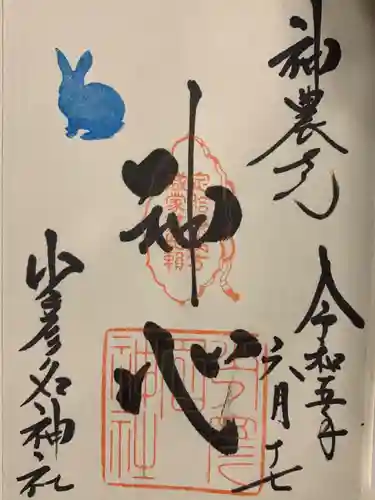 神農さん
令和五年
六月十七
神心
少彦名神社